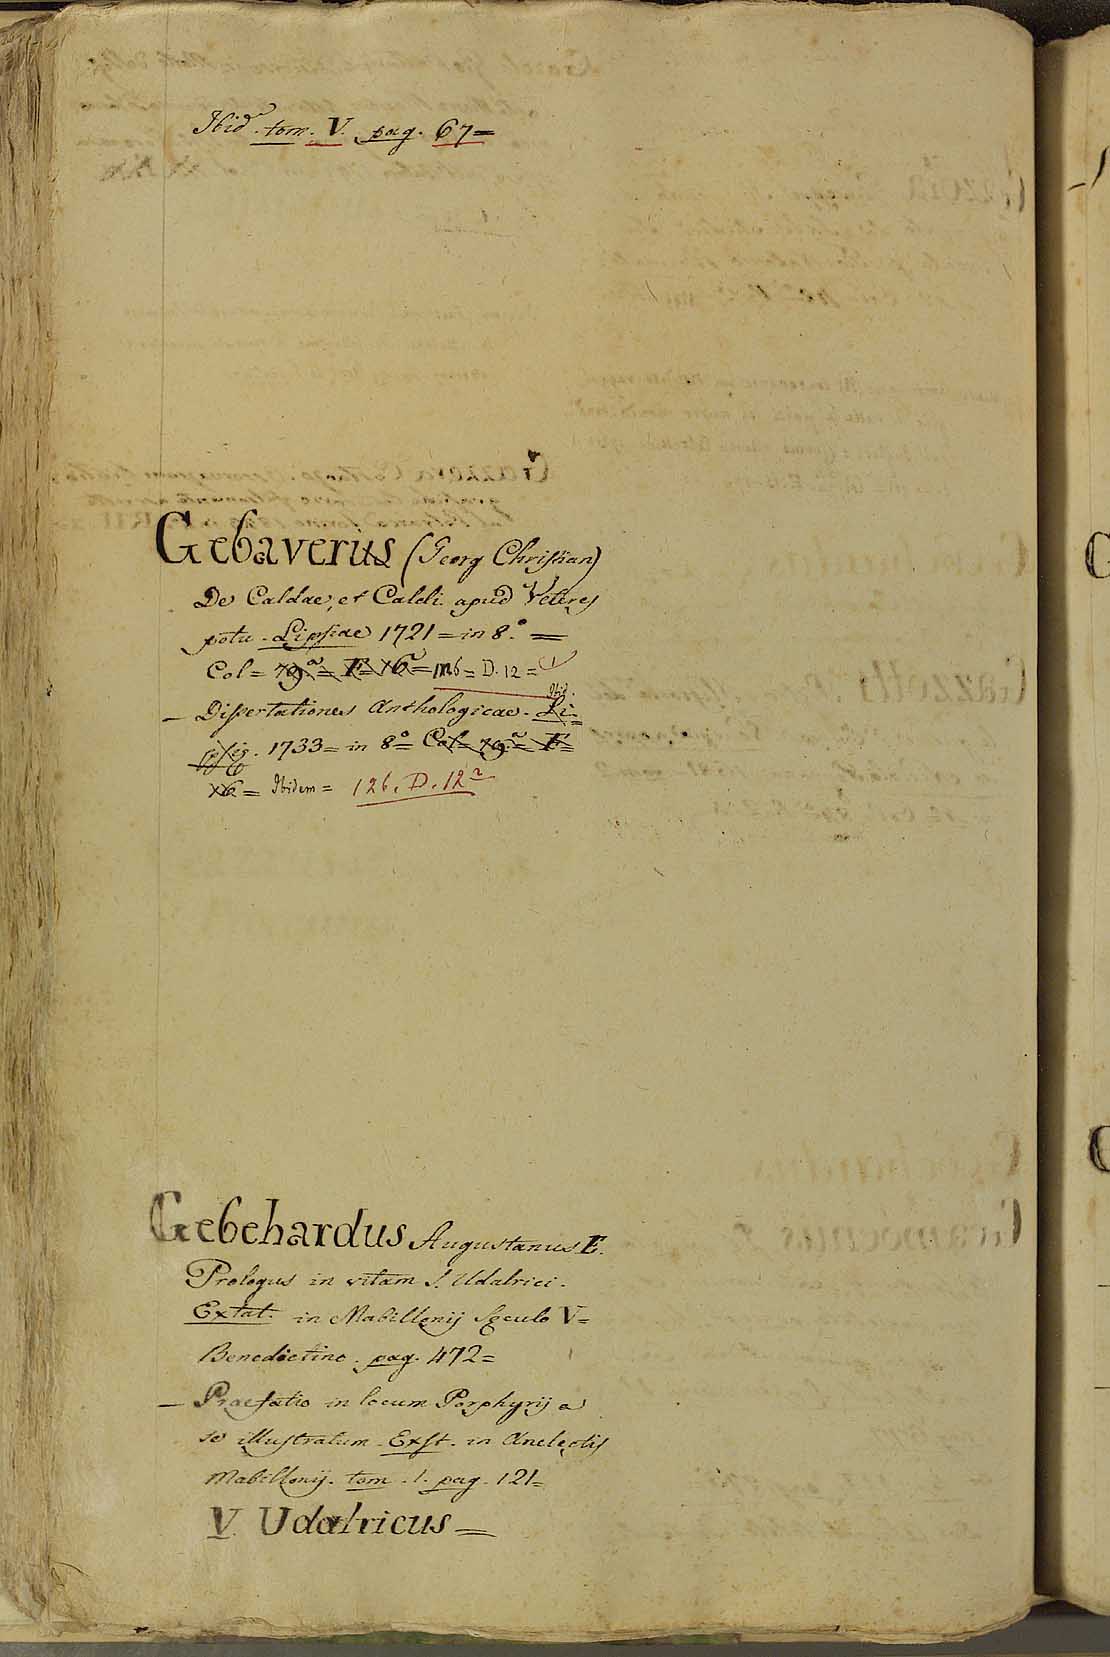 Ibid. tom. V. pag. 67=
Gebaverus (Georg Christian)
De Caldae, et Caldi apud Veteres
potu. Lipsiae 1721 = in 8.° =
Col = 79.ª = F = X6ª = 126 = D. 12 = 1
Ibid.
— Dissertationes Anthologicae. Li=
psiae. 1733 = in 8° = Col = 79ª = F =
X6 = Ibidem = 126. D. 12 ²
Gebehardus Augustanus E.
Prologus in vitam S. Udalrici.
Extat. in Mabillonij Seculo V=
Benedictino. pag. 472=
— Praefatio in locum Porphyrij a
se illustratum. Exst. in Analectis
Mabillonij. tom. 1. pag. 121=
V. Udalricus =